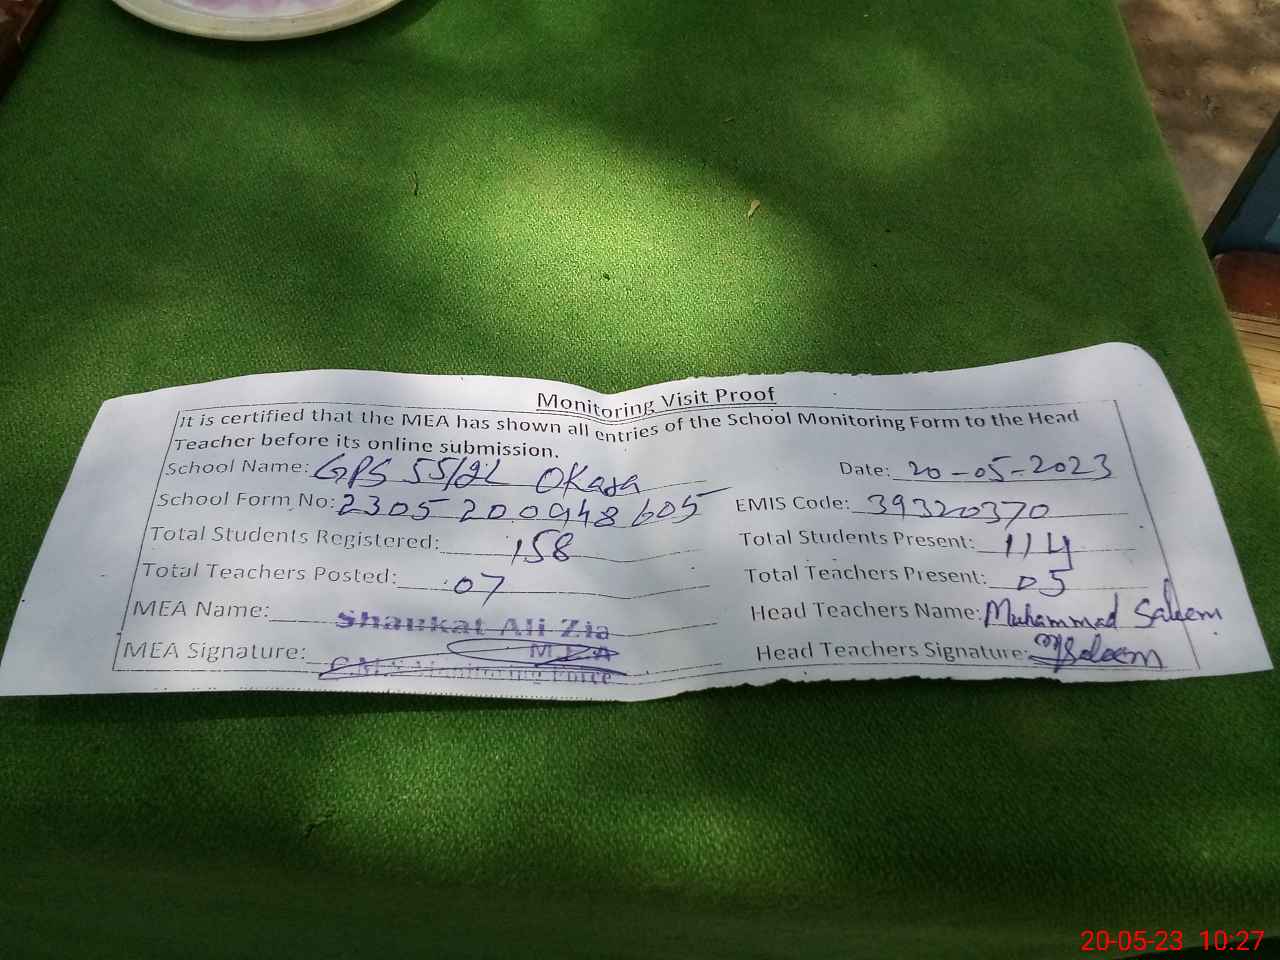 Monitoring Visit Proof
It is certified that the MEA has shown all entries of the School Monitoring Form to the Head
Teacher before its online submission.
School Name: GPS 55/2L Okara Date: 20-05-2023
School Form No: 2305200948605 EMIS Code: 39320370
Total Students Registered: 158 Total Students Present: 114
Total Teachers Posted: 07 Total Teachers Present: 05
MEA Name: Shaukat Ali Zia Head Teachers Name: Muhammad Saleem
MEA Signature: M.E.A Head Teachers Signature: MSaleem
Monitoring Force
20-05-23 10:27